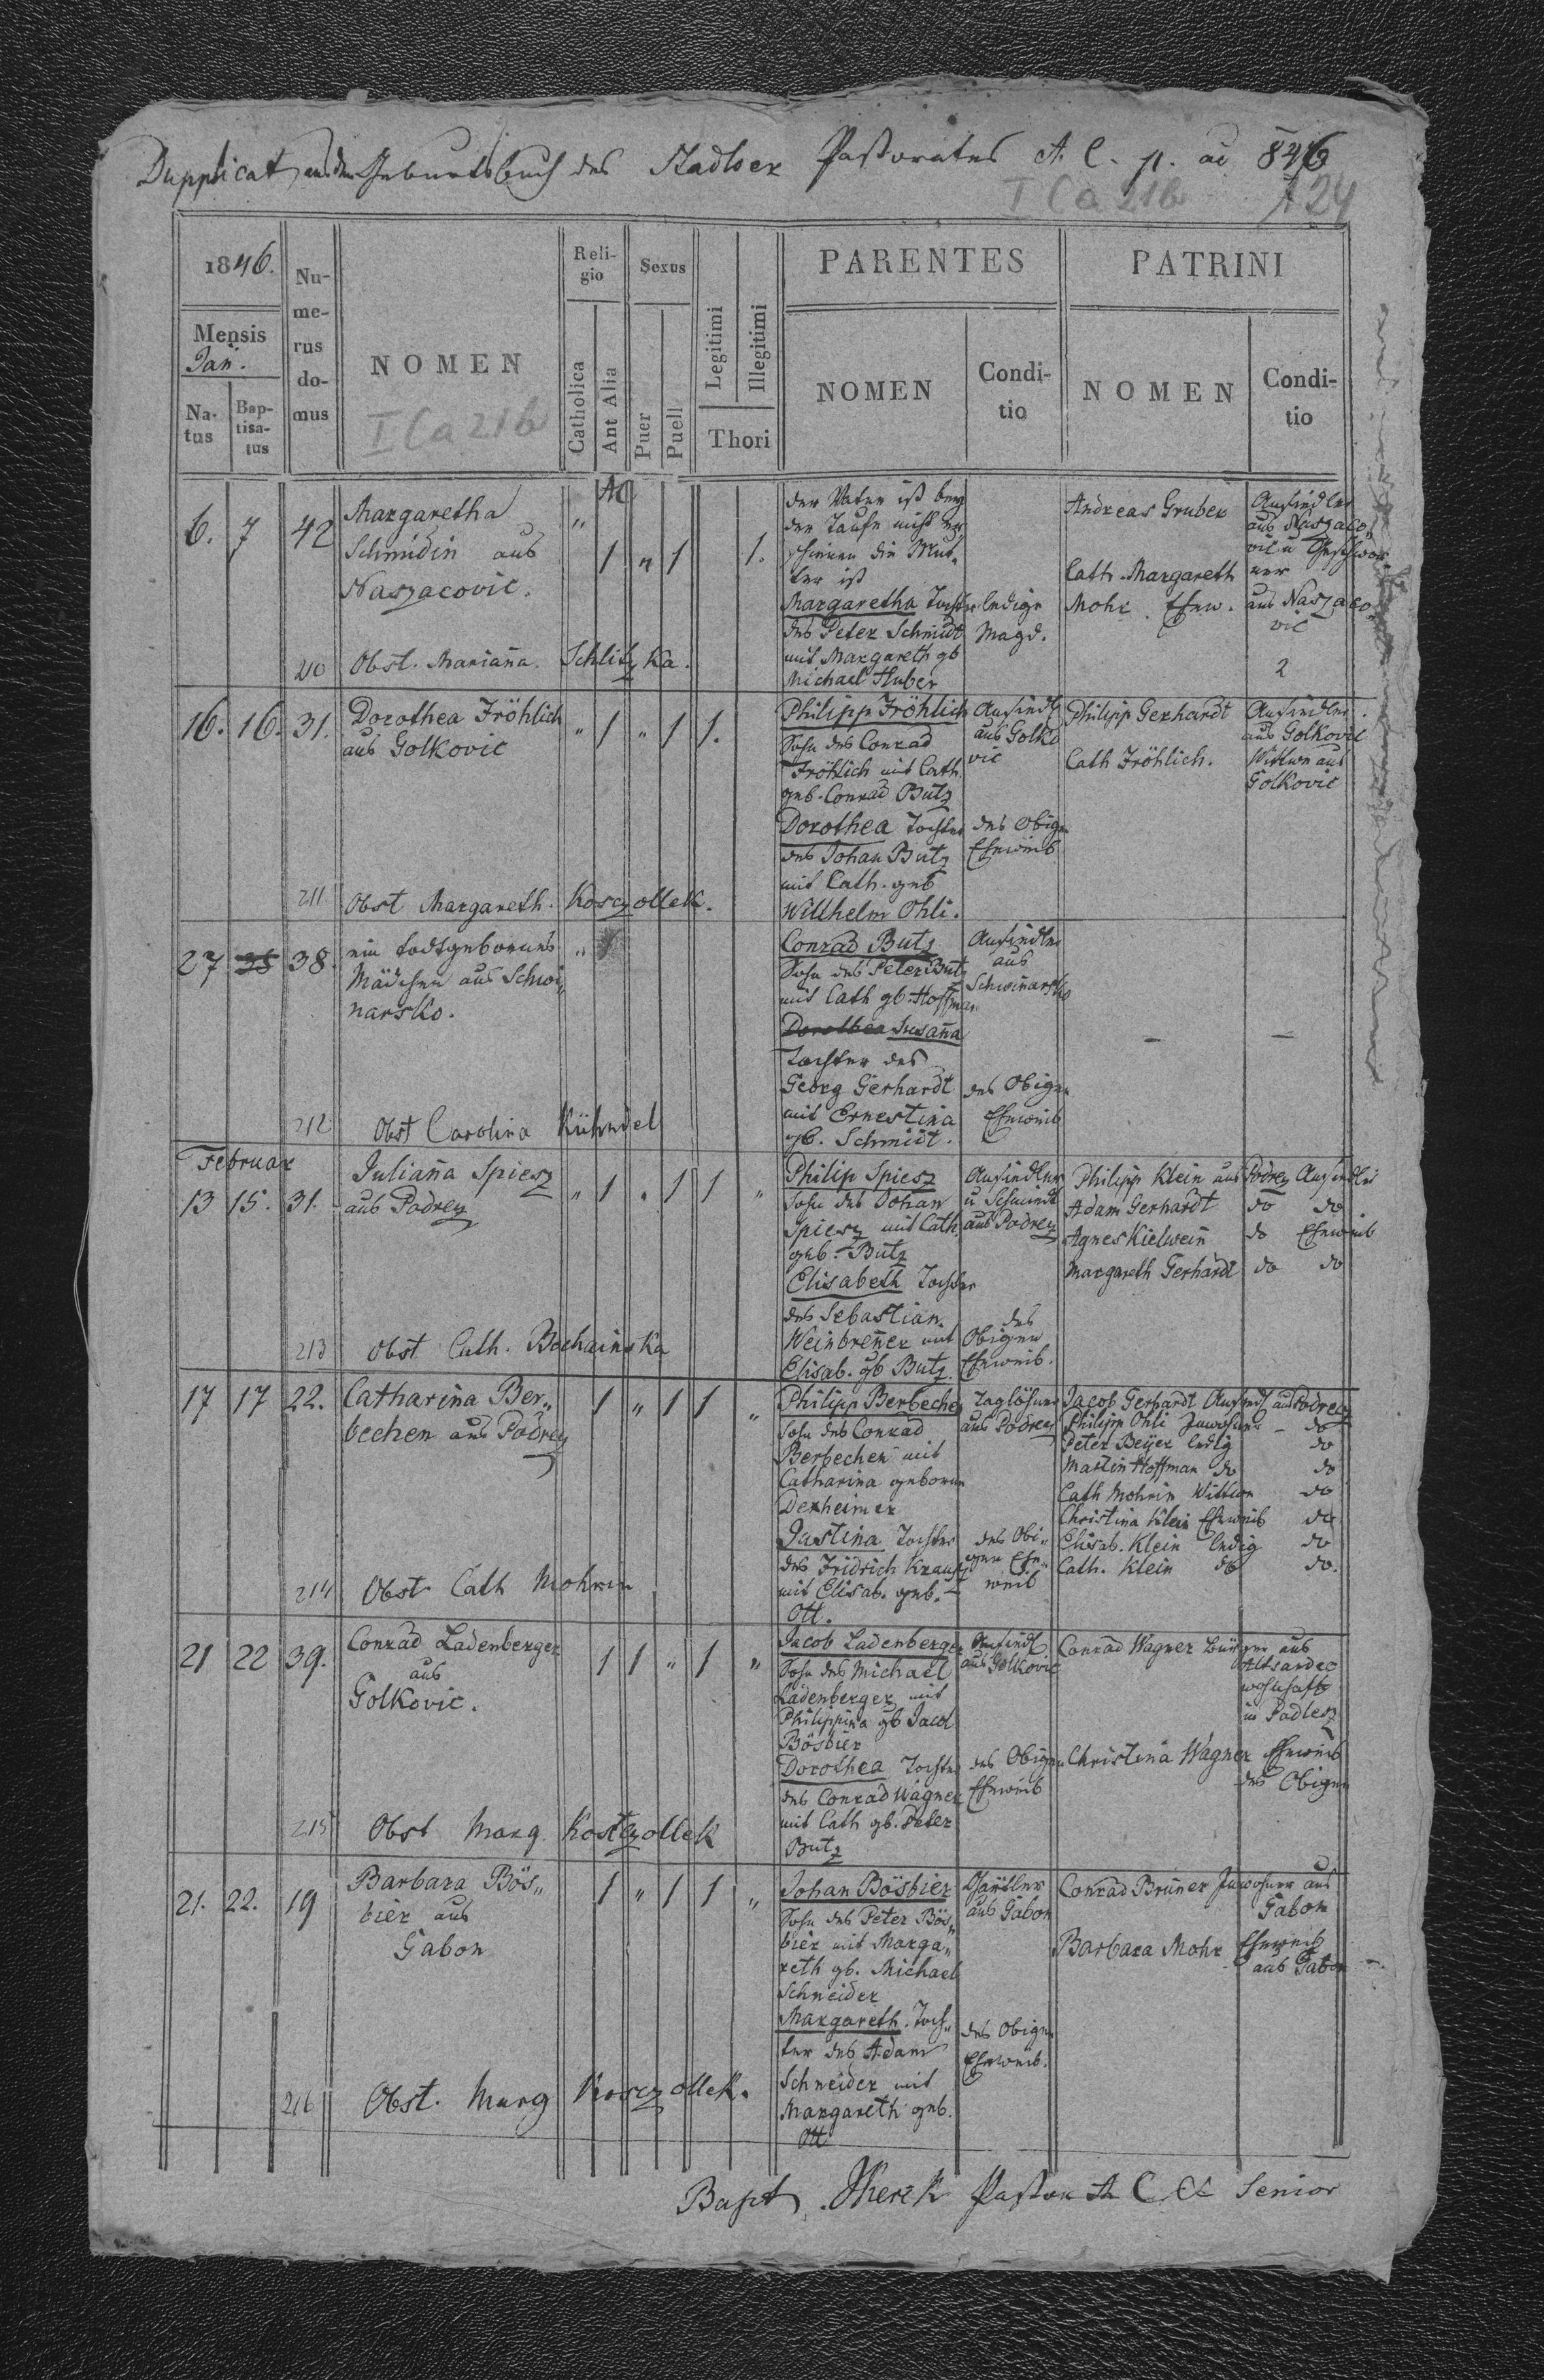 Dupplicat aus dem Geburtsbuch des Stadloer Pastorates A. C. p. ao 846
I Ca 21b 124
1846.
Mensis
Jan.
Na-
tus
Bap-
tisa-
tus
Nu-
me-
rus
do-
mus
NOMEN
I Ca 21b
Reli-
gio
Catholica
Aut Alia
Sexus
Puer
Puell
Legitimi
Illegitimi
Thori
PARENTES
NOMEN
Condi-
tio
PATRINI
NOMEN
Condi-
tio
6. 7 42
Margaretha
Schmidin aus
Naszacovic.
„ AC 1 „ 1 1.
der Vater ist bey
der Taufe nicht er
schienen die Mut-
ter ist
Margaretha Tochter
des Peter Schmidt
mit Margareth gb
Michael Huber
ledige
Magd.
Andreas Gruber
Cath. Margareth
Mohr Ehew.
Ansiedler
aus Naszaco„
vic u Geschwor
ner
aus Naszaco„
vic
2
210 Obst. Mariana Schlitzka.
16. 16. 31.
Dorothea Fröhlich
aus Golkovic
„ 1 „ 1 1.
Philipp Fröhlich
Sohn des Conrad
Fröhlich mit Cath.
geb. Conrad Butz
Dorothea Tochter
des Johan Butz
mit Cath. geb
Willhelm Ohli.
Ansiedl
aus Golko
vic
des Obigen
Eheweib
Philipp Gerhardt
Cath Fröhlich.
Ansiedler.
aus Golkovic
Wittwe aus
Golkovic
211 Obst Margareth. Kosczollek.
27 38.
ein todtgebornes
Mädchen aus Schwi„
narsko.
„
Conrad Butz
Sohn des Peter Butz
mit Cath gb. Hoffman
Dorothea Susana
Tochter des
Georg Gerhardt
mit Ernestina
gb. Schmidt.
Ansiedler
aus
Schwinarsko
des Obigen
Eheweib
— —
212 Obst Carolina Kühndel
Februar
13 15. 31.
Juliana Spiesz
aus Podrez
„ 1 „ 1 1 „
Philip Spiesz
Sohn des Johan
Spiesz mit Cath.
geb. Butz
Elisabeth Tochter
des Sebastian
Weinbrener mit
Elisab. gb Butz.
Ansiedler
u Schmidt
aus Podrez
des
Obigen
Eheweib.
Philipp Klein aus Podrez Ansiedler
Adam Gerhardt do do
Agnes Kielwein do Eheweib
Margareth Gerhardt do do
213 Obst Cath. Bochainska
17 17 22.
Catharina Ber„
bechen aus Podrez
1 „ 1 1 „
Philipp Berbechen
Sohn des Conrad
Berbechen mit
Catharina geboren
Dexheimer
Justina Tochter
des Fridrich Kraus
mit Elisab. geb.
Ott.
Taglöhner
aus Podrez
des Obi„
gen Ehe„
weib
Jacob Gerhardt Ansiedl aus Podrez
Philipp Ohli Inwohner do
Peter Beÿer ledig do
Martin Hoffman do do
Cath Mohrin Wittwe do
Christina Klein Eheweib do
Elisab. Klein ledig do
Cath. Klein do do.
214 Obst Cath Mohrin
21 22 39.
Conrad Ladenberger
aus
Golkovic.
1 1 „ 1 „
Jacob Ladenberger
Sohn des Michael
Ladenberger mit
Philippina gb Jacob
Bösbier
Dorothea Tochter
des Conrad Wagner
mit Cath gb. Peter
Butz
Ansiedl
aus Golkovic
des Obigen
Eheweib
Conrad Wagner Bürger aus
Altsandec
wohnhaft
in Padlesz
Christina Wagner Eheweib
des Obigen
215 Obst Marg. Kostzollek
21. 22. 19
Barbara Bös„
bier aus
Gabon
1 „ 1 1 „
Johan Bösbier
Sohn des Peter Bös„
bier mit Marga„
reth gb. Michael
Schneider
Margareth. Toch„
ter des Adam
Schneider mit
Margareth geb.
Ott
Gärtler
aus Gabon
des Obigen
Eheweib.
Conrad Bruner Inwohner aus
Gabon
Barbara Mohr Eheweib
aus Gabon
216 Obst. Marg Kosczollek.
Bapt. Pastor A C & Senior